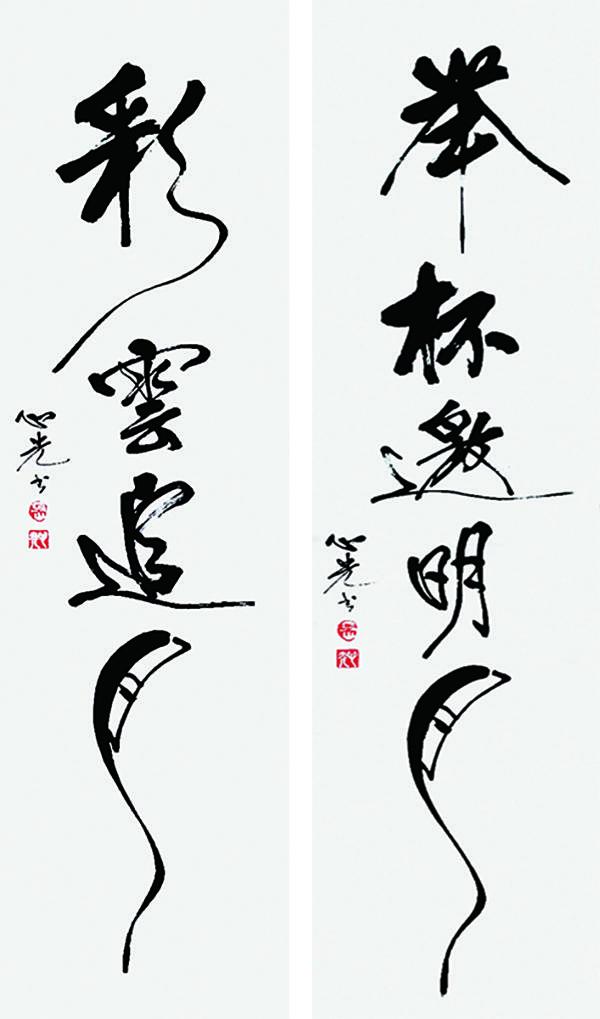 举杯邀明月
心光书
彩雲追月
心光书